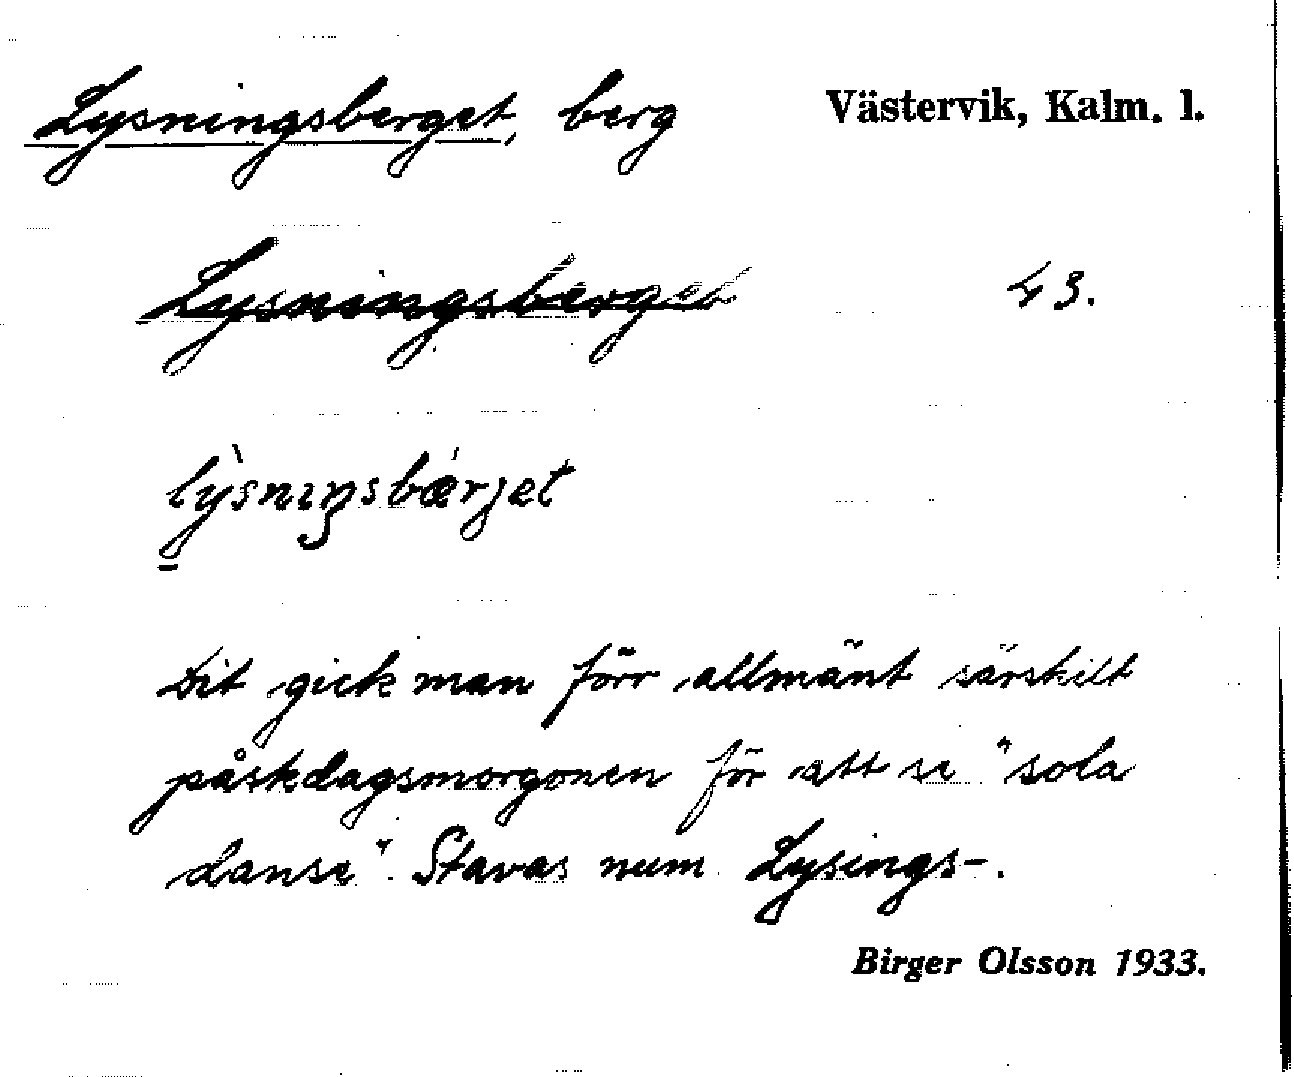 Lysningsberget, berg Västervik, Kalm. l.
Lysningsberget 43.
lỳsnıŋsbǽrjet
Dit gick man förr allmänt särskilt
påskdagsmorgonen för att se "sola
danse". Stavas num Lysings-.
Birger Olsson 1933.